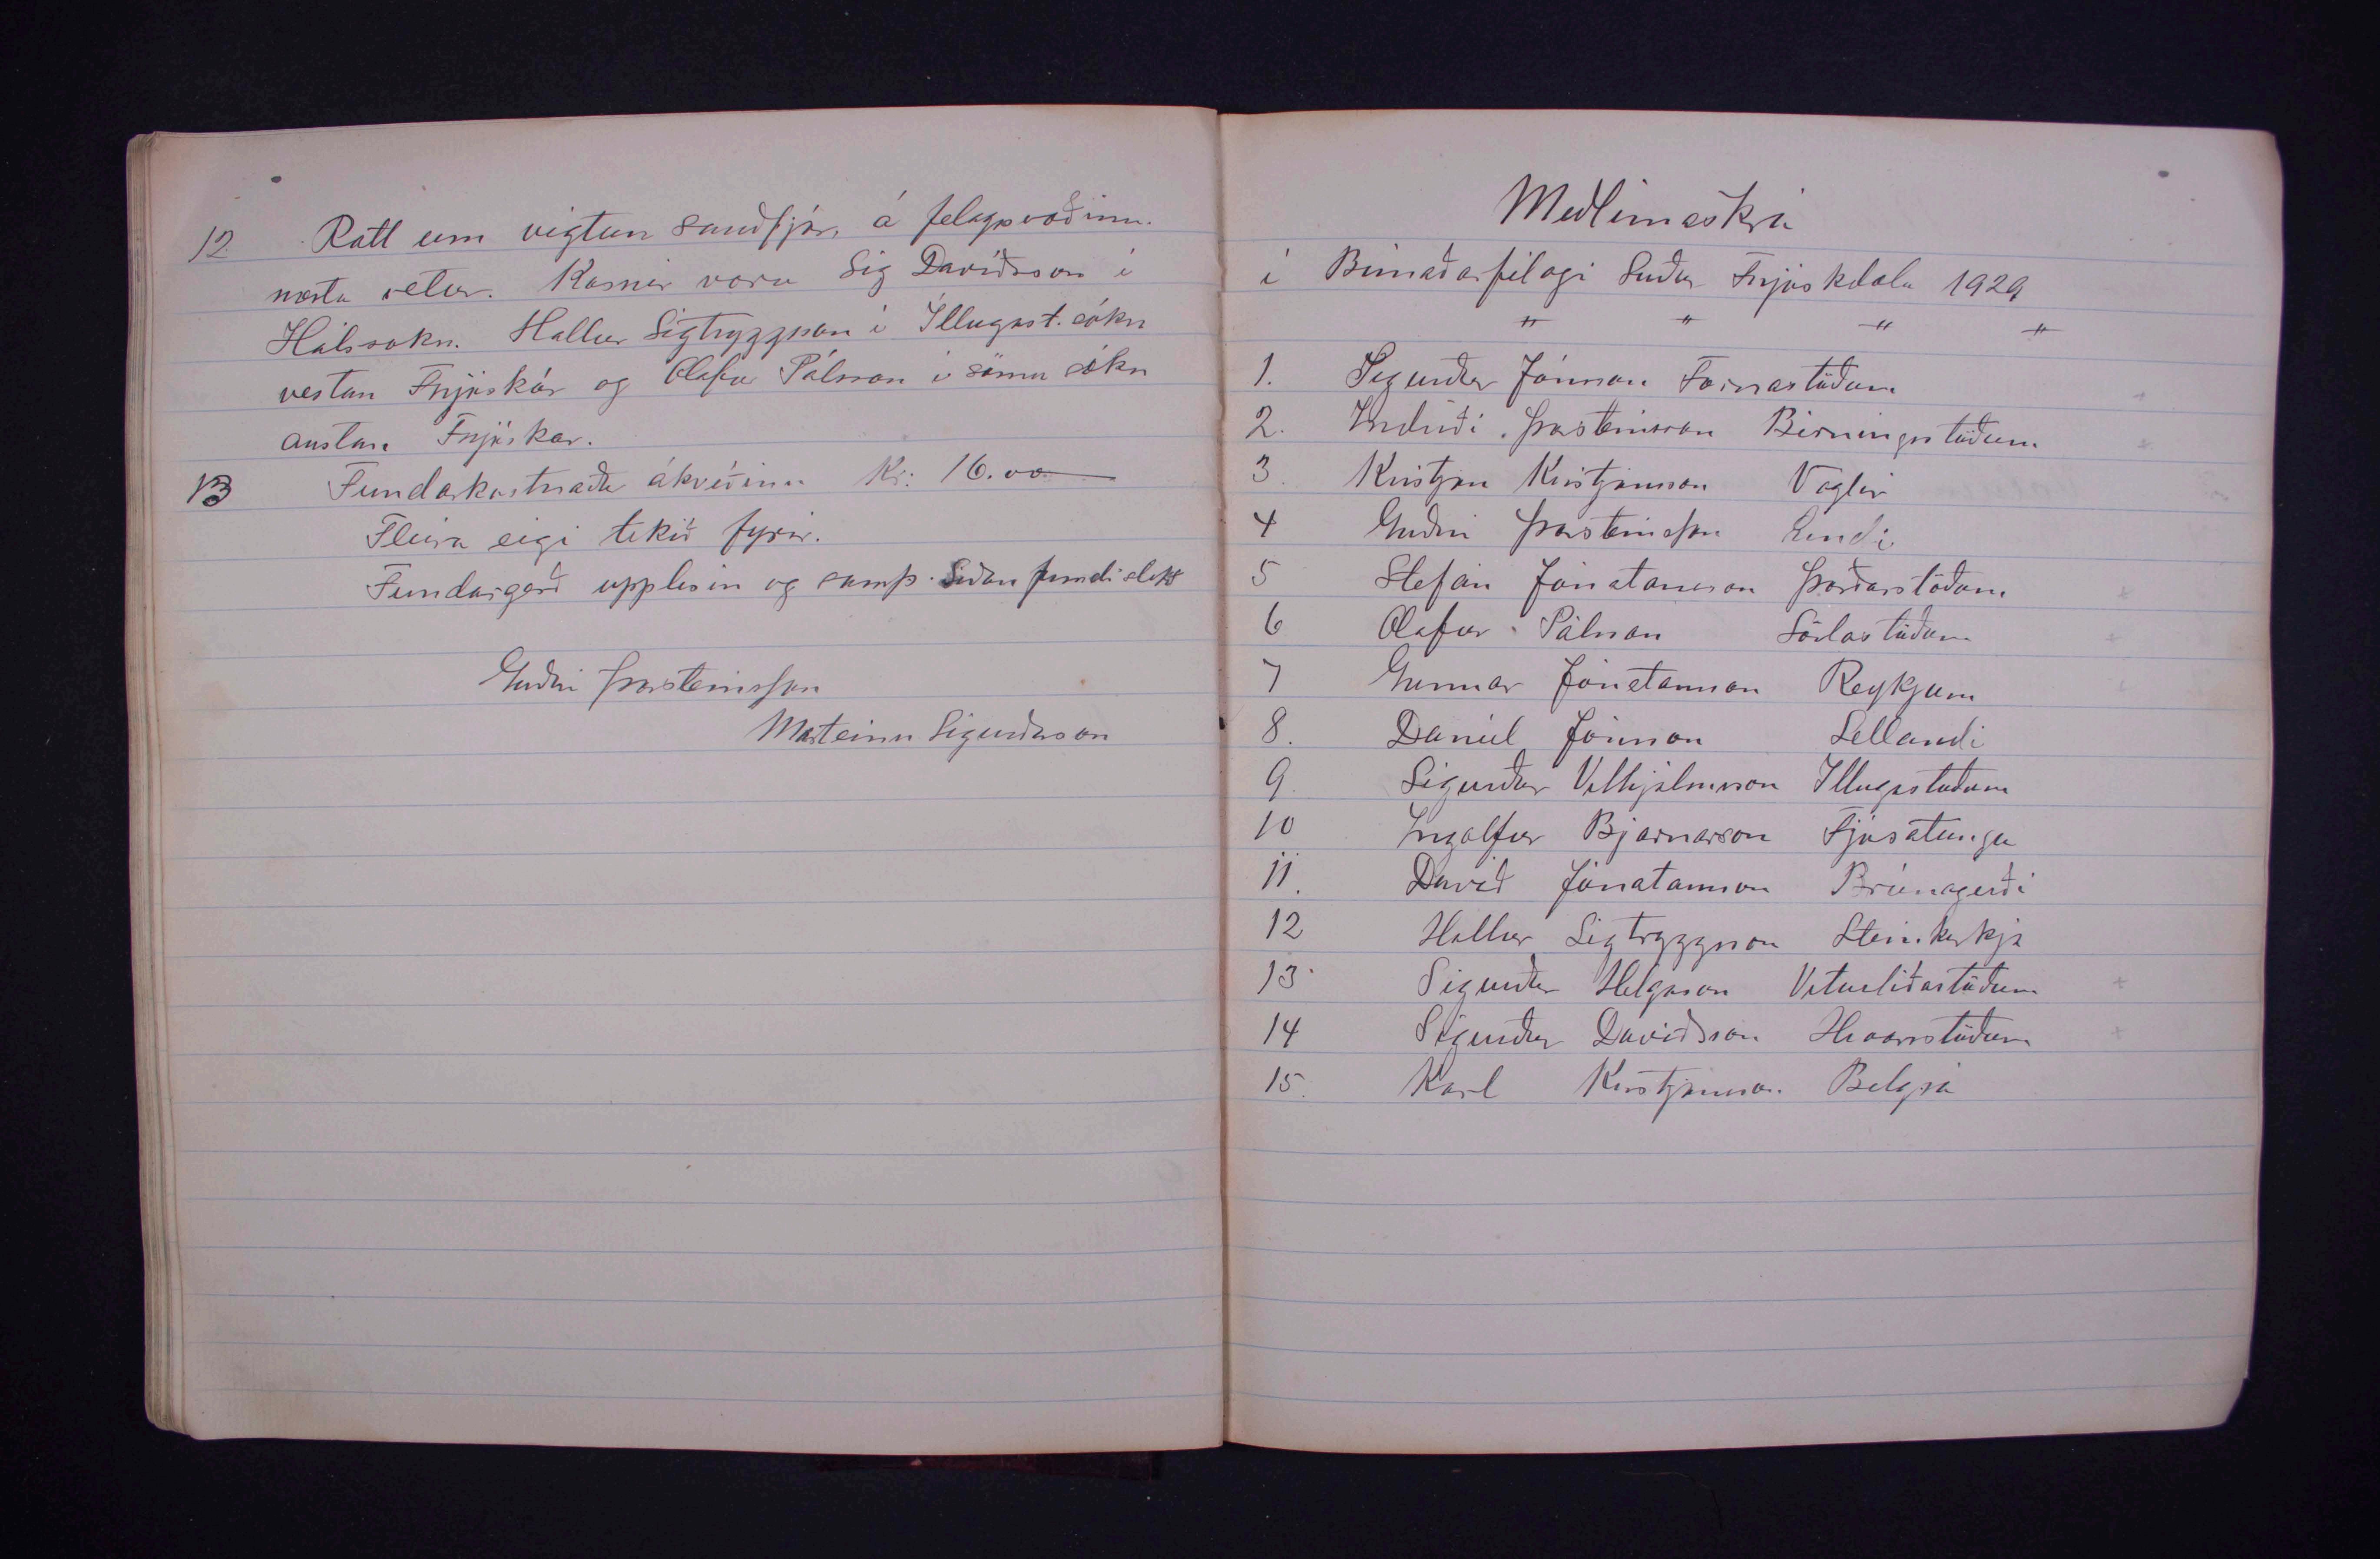 12. Rætt um vigtun sauðfjár, á felagsvæðinu
næsta vetur. Kosnir voru Sig Davíðsson í
Hálssokn. Hallur Sigtryggsson í Illugast. sókn
vestan Fnjóskár og Olafur Pálsson í sömu sókn
austan Fnjóskár.
13 Fundarkostnaður ákveðinn Kr: 16.00
Fleira eigi tekið fyrir.
Fundargerð upplesin og samþ. Siðan fundi slitið
Guðni Þorsteinsson
Marteinn Sigurðsson
Meðlimaskrá
í Búnaðarfélagi Suður Fnjóskdæla 1929
" " " "
1. Sigurður Jónsson Fornastöðum
2. Indriði Þorsteinsson Birningsstöðum
3. Kristján Kristjánsson Vöglum
4 Guðni Þorsteinsson Lundi
5 Stefán Jónatansson Þórðarstöðum
6 Olafur Pálsson Sörlastöðum
7 Gunnar Jónatansson Reykjum
8. Daníel Jónsson Sellandi
9. Sigurður Vilhjálmsson Illugastöðum
10 Ingólfur Bjarnarson Fjósatungu
11. Davíð Jónatansson Brúnagerði
12 Hallur Sigtryggsson Steinkirkju
13 Sigurður Helgason Veturliðastöðum
14 Sigurður Davíðsson Hróarsstöðum
15. Karl Kristjánsson Belgsá